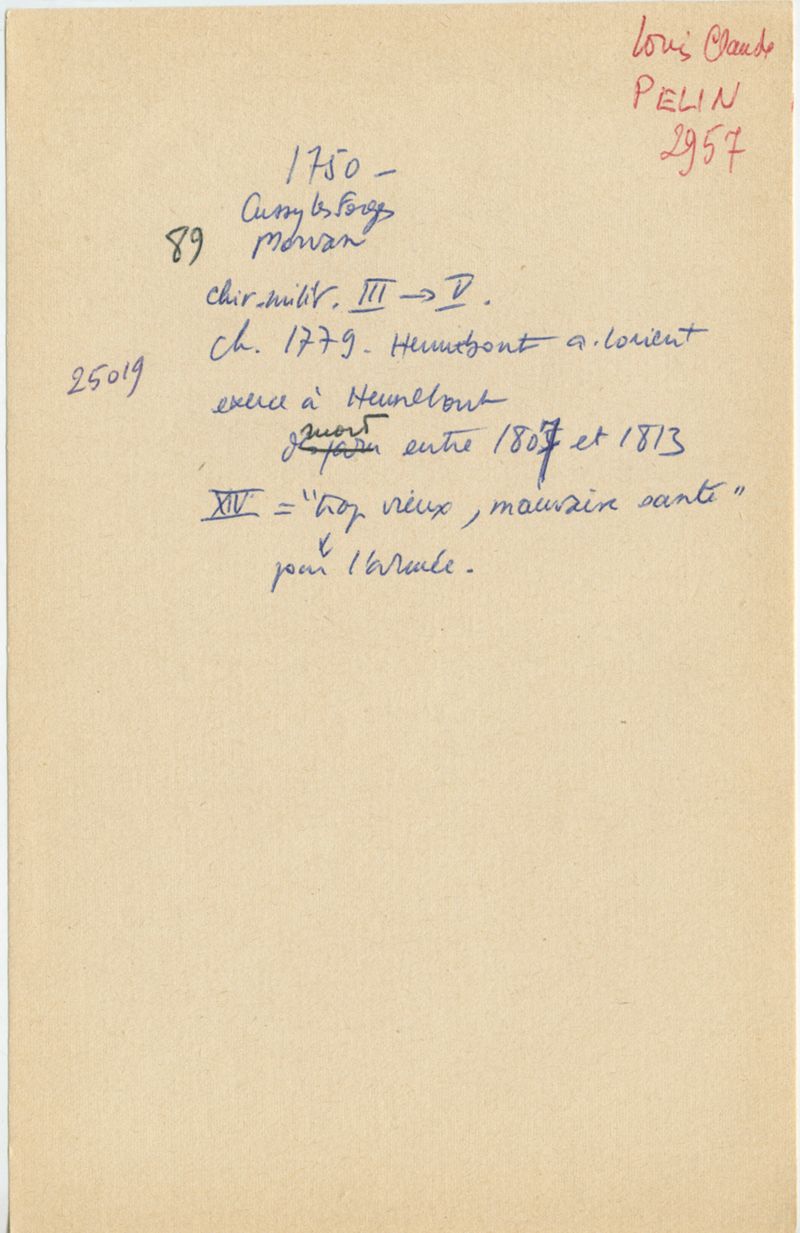 Louis Claude
PELIN
2957
1750 -
Cussy les Forges
89 Morvan
chir. milit. III → V.
ch. 1779. Hennebont a. Lorient
25019
exerce à Hennebont
mort
entre 1807 et 1813
XIV = "trop vieux, mauvaise santé"
pour l'armée.